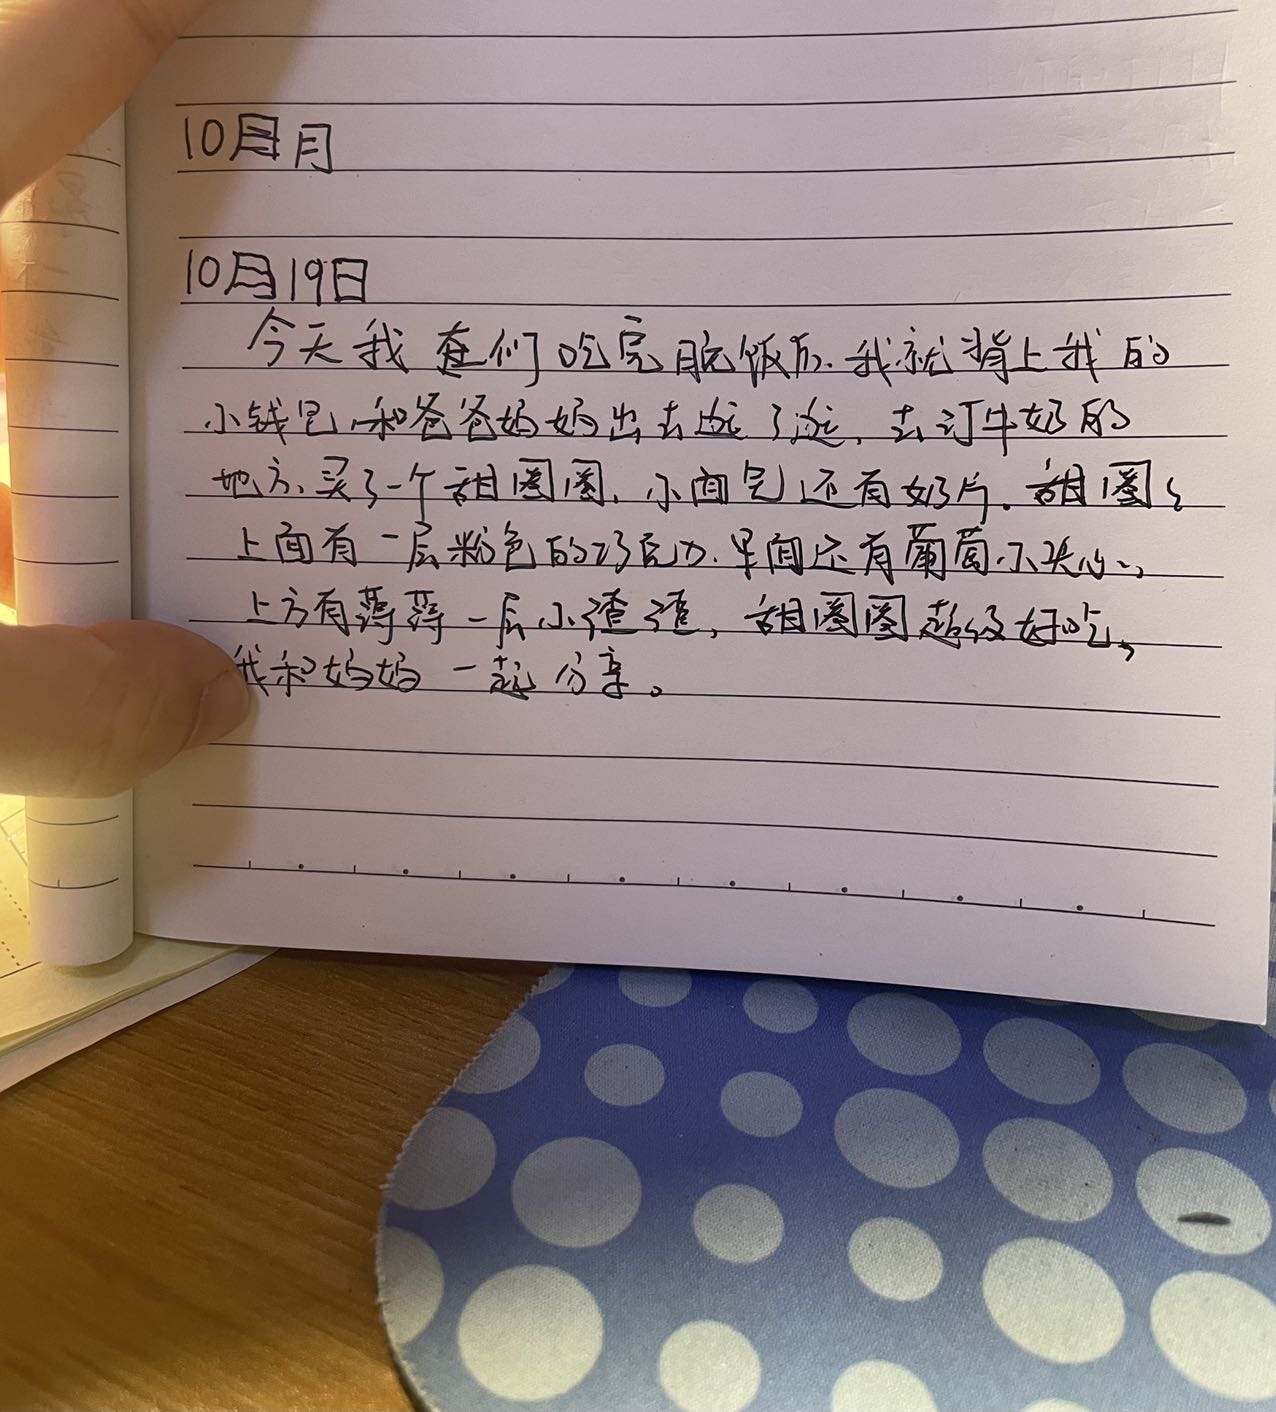 10月月
10月19日
今天我在们吃完晚饭后.我就背上我的
小钱包,和爸爸妈妈出去逛了逛,去订牛奶的
地方,买了一个甜圈圈,小面包还有奶片.甜圈
上面有一层粉色的巧克力.里面还有葡萄小夹心,
上方有薄薄一层小渣渣,甜圈圈超级好吃,
我和妈妈一起分享。